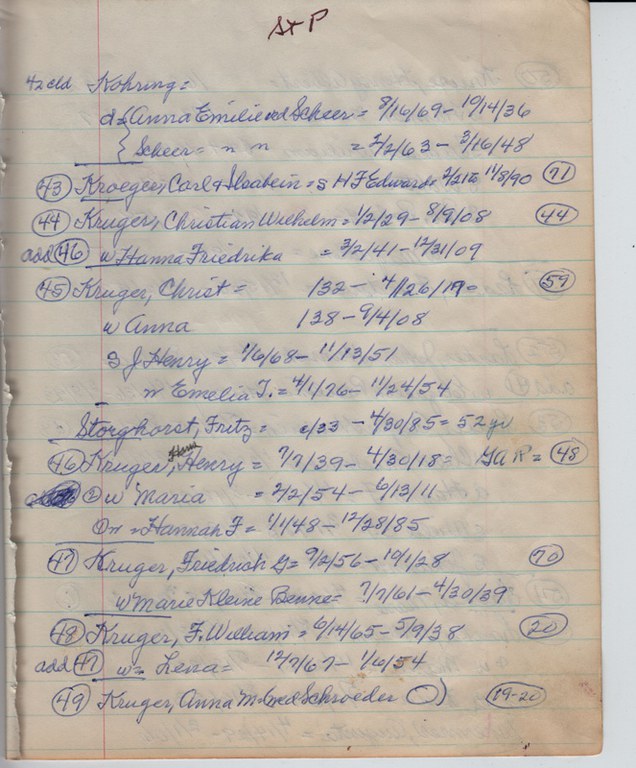 St P
42 cld Kohring =
d = Anna Emilie wd Scheer = 8/16/69 - 10/14/36
Scheer = " " = 2/2/63 - 3/16/48
(43) Kroeger, Carl & = s H F Edward = 11/8/90 (71)
(44) Kruger, Christian Wilhelm = 1/2/29 - 8/9/08 (44)
add (46) w Hanna Friedrika = 3/2/41 - 12/31/09
(45) Kruger, Christ = /32 - 4/26/19 (59)
w Anna /38 - 9/4/08
s J Henry = 1/6/68 - 11/13/51
w Emelia T. = 4/1/76 - 11/24/54
Storghorst, Fritz = c/33 - 4/30/85 = 52 yr
(46) Kruger, Henry = 7/7/39 - 4/30/18 = GAR = (48)
② w Maria = 2/2/54 - 6/13/11
① w = Hannah F = 1/1/48 - 12/28/85
(47) Kruger, Friedrich G = 9/2/56 - 10/1/28 (70)
w Marie Kleine Benne = 7/7/61 - 4/30/39
(48) Kruger, F. William = 6/14/65 - 5/9/38 (20)
add (47) w = Lena = 12/7/67 - 1/6/54
(49) Kruger, Anna M Schroeder (19-20)